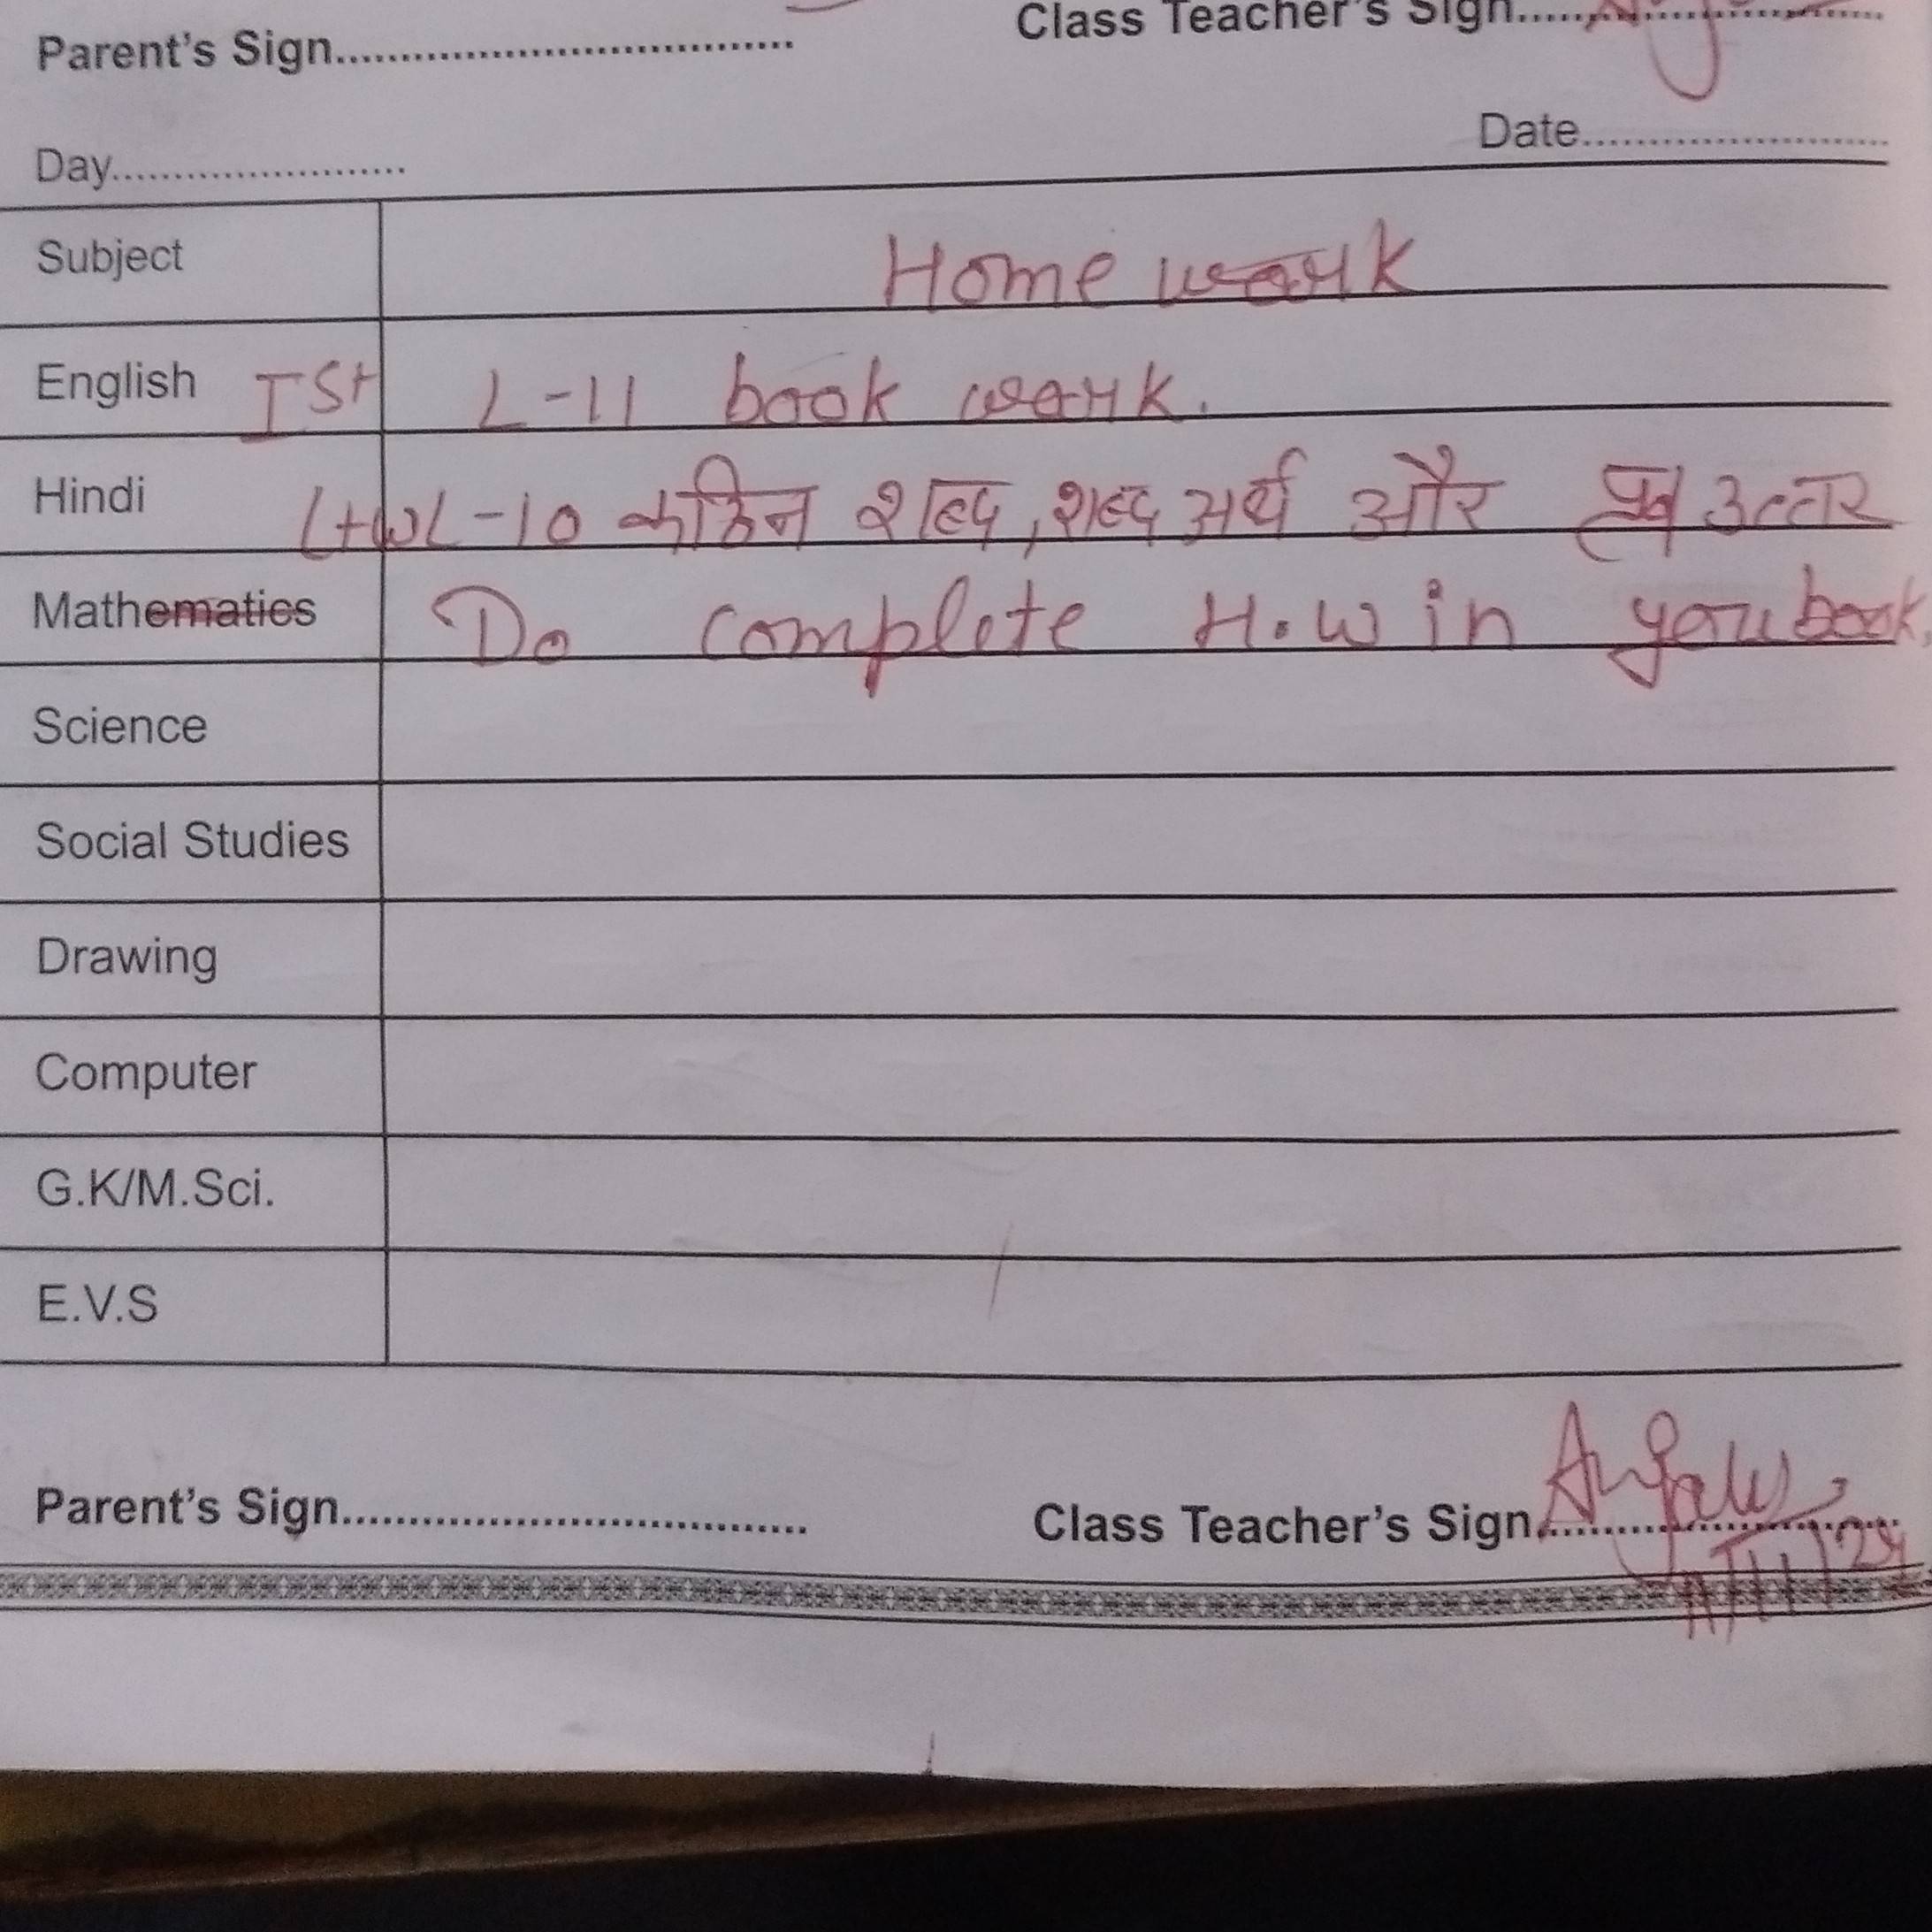 Parent's Sign.................................... Class Teacher's Sign............................
Day........................ Date........................
Subject Home work
English Ist L-11 book work.
Hindi L+WL-10 कठिन शब्द, शब्द अर्थ और प्रश्न उत्तर
Mathematics Do complete H.w in you book.
Science
Social Studies
Drawing
Computer
G.K/M.Sci.
E.V.S
Parent's Sign.................................... Class Teacher's Sign............................